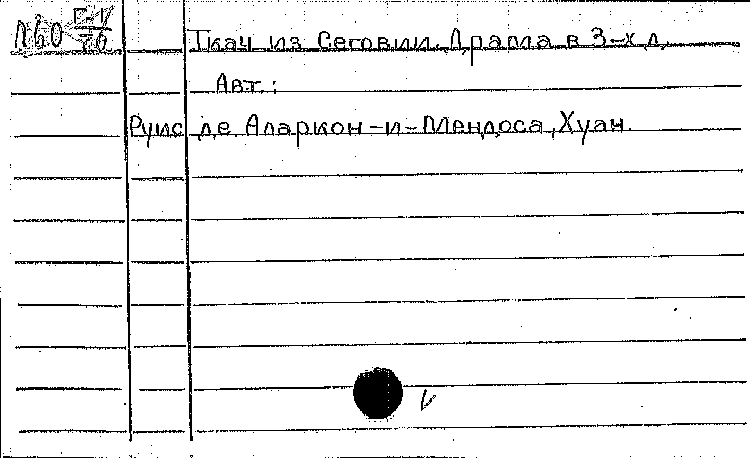 Ткач из Сеговии. Драма в 3-х д.
Авт.:
Руис де Аларкон-и-Мендоса, Хуан.